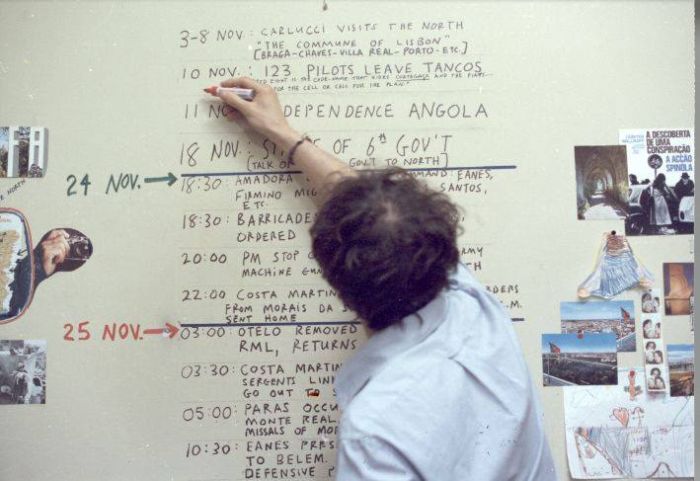 3-8 NOV: CARLUCCI VISITS THE NORTH
"THE COMMUNE OF LISBON"
[BRAGA-CHAVES-VILLA REAL-PORTO-ETC.]
10 NOV.: 123 PILOTS LEAVE TANCOS
IS THE CODE-NAME THAT AND THE
FOR THE CELL OR CALL FOR THE PLAN"
11 NO DEPENDENCE ANGOLA
18 NOV: ST OF 6th GOV'T
(TALK OF GOV'T TO NORTH)
24 NOV.→
18:30: AMADORA MMAND: EANES,
FIRMINO MIG SANTOS,
ETC.
18:30: BARRICADES
ORDERED
20:00 PM STOP O RMY
MACHINE GUN TH
22:00 COSTA MARTIN RDERS
FROM MORAIS DA S .M.
SENT HOME
25 NOV.→
03:00: OTELO REMOVED
RML, RETURNS
03:30: COSTA MARTIN
SERGENTS LINK
GO OUT TO S
05:00: PARAS OCCU
MONTE REAL,
MISSALS OF MO
10:30: EANES PRES
TO BELEM.
DEFENSIVE P
NORTH
A DESCOBERTA
DE UMA
CONSPIRAÇÃO
A ACÇÃO
SPÍNOLA